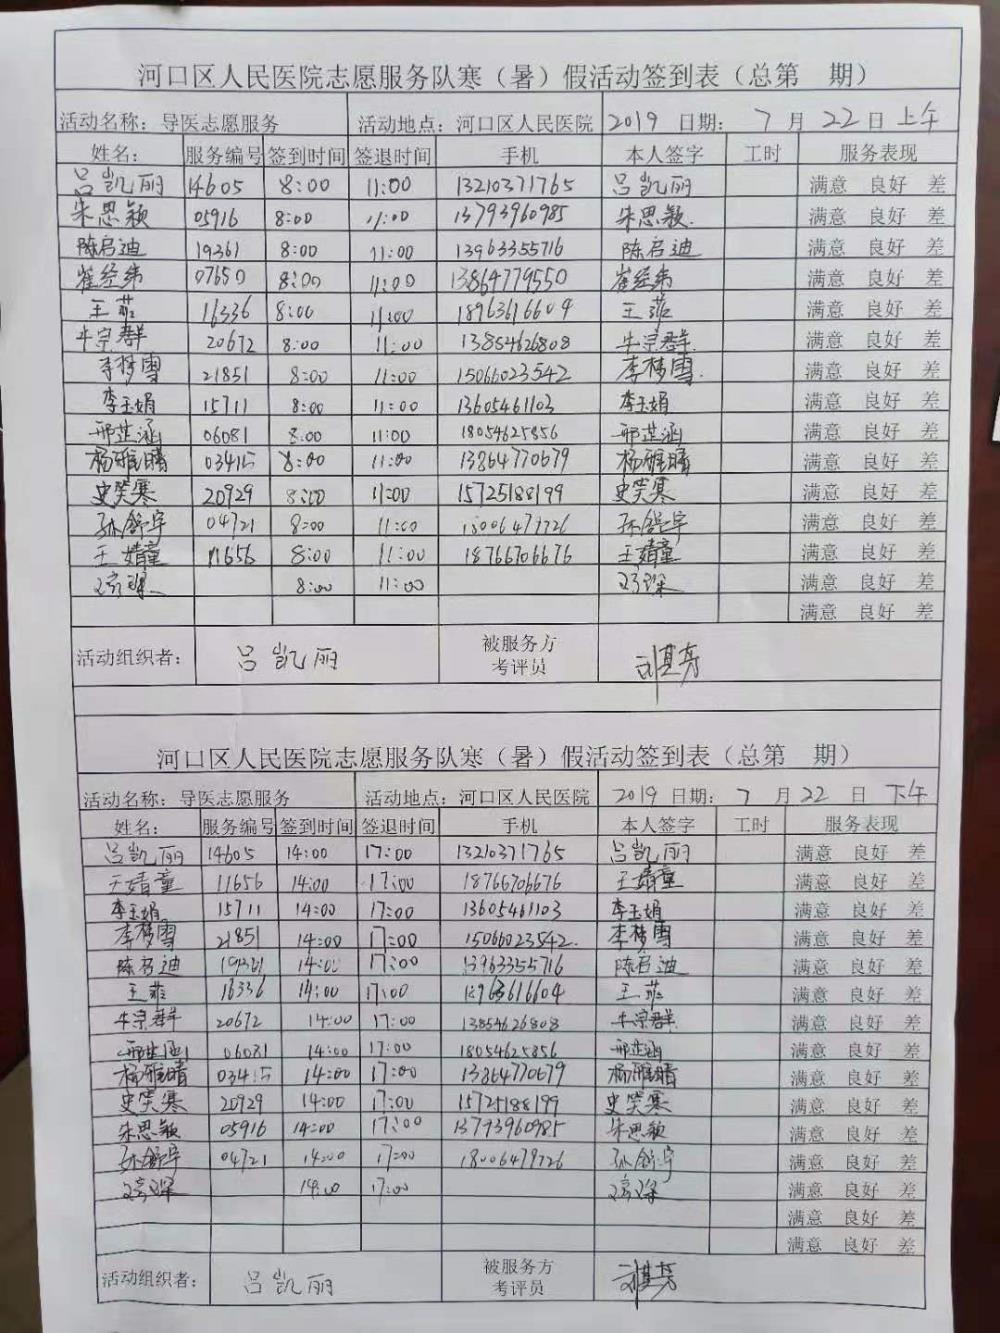 河口区人民医院志愿服务队寒（暑）假活动签到表（总第 期）
活动名称：导医志愿服务 活动地点：河口区人民医院 2019 日期： 7 月 22 日 上午
姓名： 服务编号 签到时间 签退时间 手机 本人签字 工时 服务表现
吕凯丽 14605 8:00 11:00 13210371765 吕凯丽 满意 良好 差
朱思颖 05916 8:00 11:00 13793960985 朱思颖. 满意 良好 差
陈启迪 19361 8:00 11:00 13963355716 陈启迪 满意 良好 差
崔经纬 07650 8:00 11:00 13864779550 崔经纬 满意 良好 差
王菲 16336 8:00 11:00 18963616604 王菲 满意 良好 差
牛宗群 20672 8:00 11:00 13854626808 牛宗群. 满意 良好 差
李梦雪 21851 8:00 11:00 15066023542 李梦雪. 满意 良好 差
李玉娟 15711 8:00 11:00 13605461103 李玉娟 满意 良好 差
邢芷涵 06081 8:00 11:00 18054625856 邢芷涵 满意 良好 差
杨雅晴 03415 8:00 11:00 13864770679 杨雅晴 满意 良好 差
史笑寒 20929 8:00 11:00 15725188199 史笑寒 满意 良好 差
孙舒宇 04721 8:00 11:00 孙舒宇 满意 良好 差
王婧童 11656 8:00 11:00 18766706676 王婧童 满意 良好 差
8:00 11:00 满意 良好 差
满意 良好 差
活动组织者： 吕凯丽 被服务方 刘其亮
考评员
河口区人民医院志愿服务队寒（暑）假活动签到表（总第 期）
活动名称：导医志愿服务 活动地点：河口区人民医院 2019 日期： 7 月 22 日 下午
姓名： 服务编号 签到时间 签退时间 手机 本人签字 工时 服务表现
吕凯丽 14605 14:00 17:00 13210371765 吕凯丽 满意 良好 差
王婧童 11656 14:00 17:00 18766706676 王婧童 满意 良好 差
李玉娟 15711 14:00 17:00 13605461103 李玉娟 满意 良好 差
李梦雪 21851 14:00 17:00 15066023542. 李梦雪 满意 良好 差
陈启迪 19361 14:00 17:00 13963355716 陈启迪 满意 良好 差
王菲 16336 14:00 17:00 18963616604 王菲 满意 良好 差
牛宗群 20672 14:00 17:00 13854626808 牛宗群. 满意 良好 差
邢芷涵 06081 14:00 17:00 18054625856 邢芷涵 满意 良好 差
杨雅晴 03415 14:00 17:00 13864770679 杨雅晴 满意 良好 差
史笑寒 20929 14:00 17:00 15725188199 史笑寒 满意 良好 差
朱思颖 05916 14:00 17:00 13793960985 朱思颖 满意 良好 差
孙舒宇 04721 14:00 17:00 18006479726 孙舒宇 满意 良好 差
14:00 17:00 满意 良好 差
满意 良好 差
满意 良好 差
活动组织者： 吕凯丽 被服务方 刘其亮
考评员